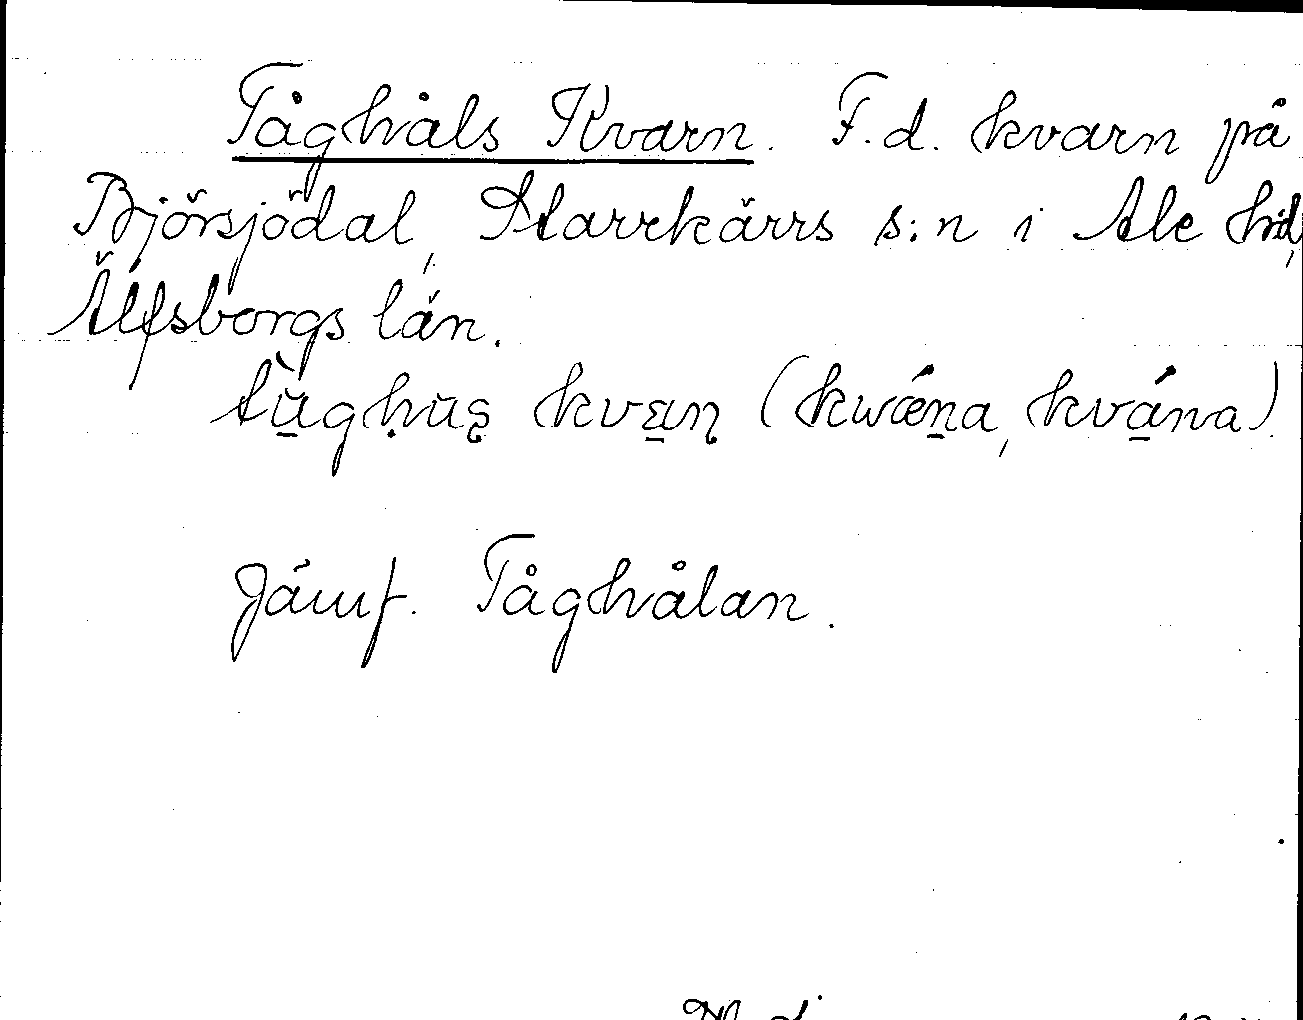 Tåghåls Kvarn. F.d. kvarn på
Björsjödal, Starrkärrs s:n i Ale hd,
Älfsborgs län.
tùghūs kvaɳ (kwǽna, kvána)
Jämf. Tåghålan.